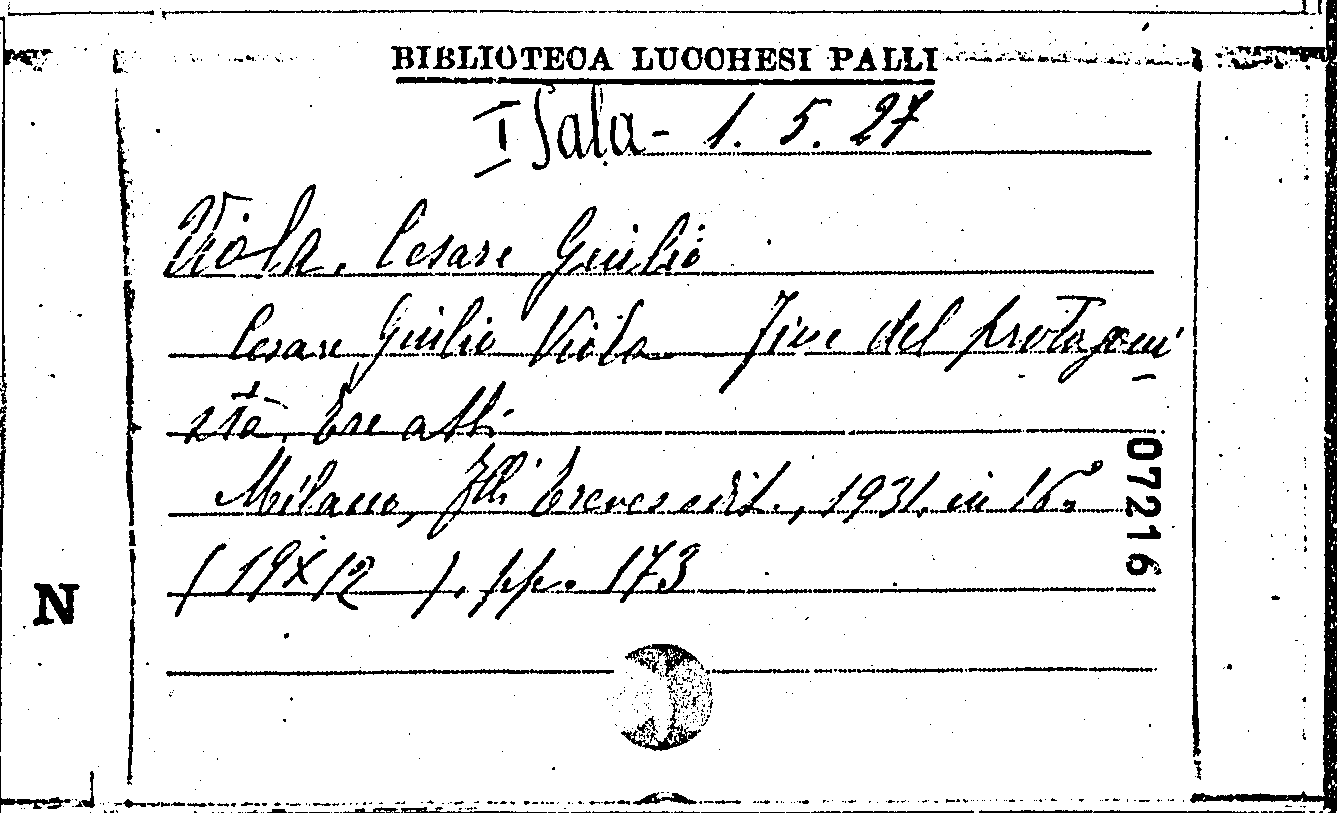 BIBLIOTECA LUCCHESI PALLI
I Sala - 1. 5. 27
Viola, Cesare Giulio
Cesare Giulio Viola Fine del protagoni
sta, tre atti
Milano, Flli Treves edit., 1931, in 16º
( 19 x 12 ), pp. 173
07216
N